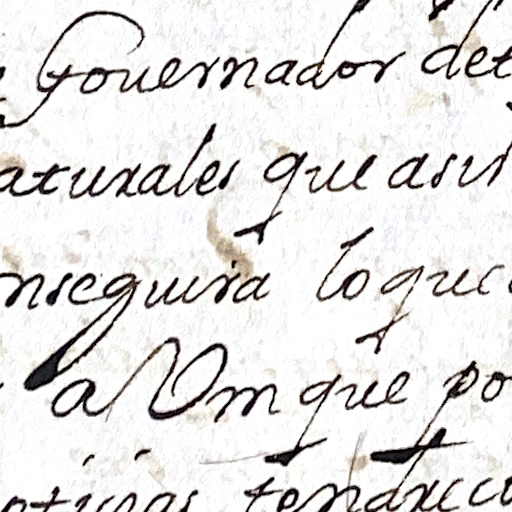 Gouernador de t
aturales que asis
nseguira lo que
a Vm que po
oticias tendre